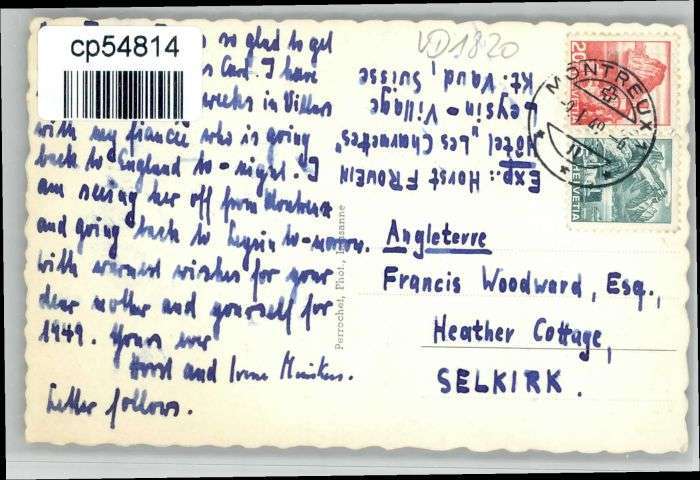 cp54814
so glad to get
Card. I have
weeks in Villars
with my fiancée who is going
back to England to-night. I
am seeing her off from Montreux
and going back to Leysin to-morrow.
With warmest wishes for your
dear mother and yourself for
1949. Yours ever
Horst and Irene
Letter follows.
Perrochet, Phot., Lausanne
VD1820
Exp.: Horst FROWEIN
Hôtel "Les Charmettes"
Leysin - Village
Kt: Vaud, Suisse
Angleterre
Francis Woodward, Esq.,
Heather Cottage,
SELKIRK.
20
MONTREUX 1
HELVETIA